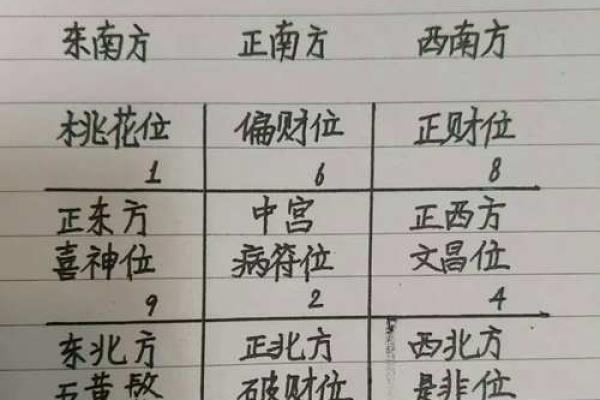 东南方 正南方 西南方
桃花位 偏财位 正财位
1 6 8
正东方 中宫 正西方
喜神位 病符位 文昌位
9 2 4
东北方 正北方 西北方
五黄煞 破财位 是非位